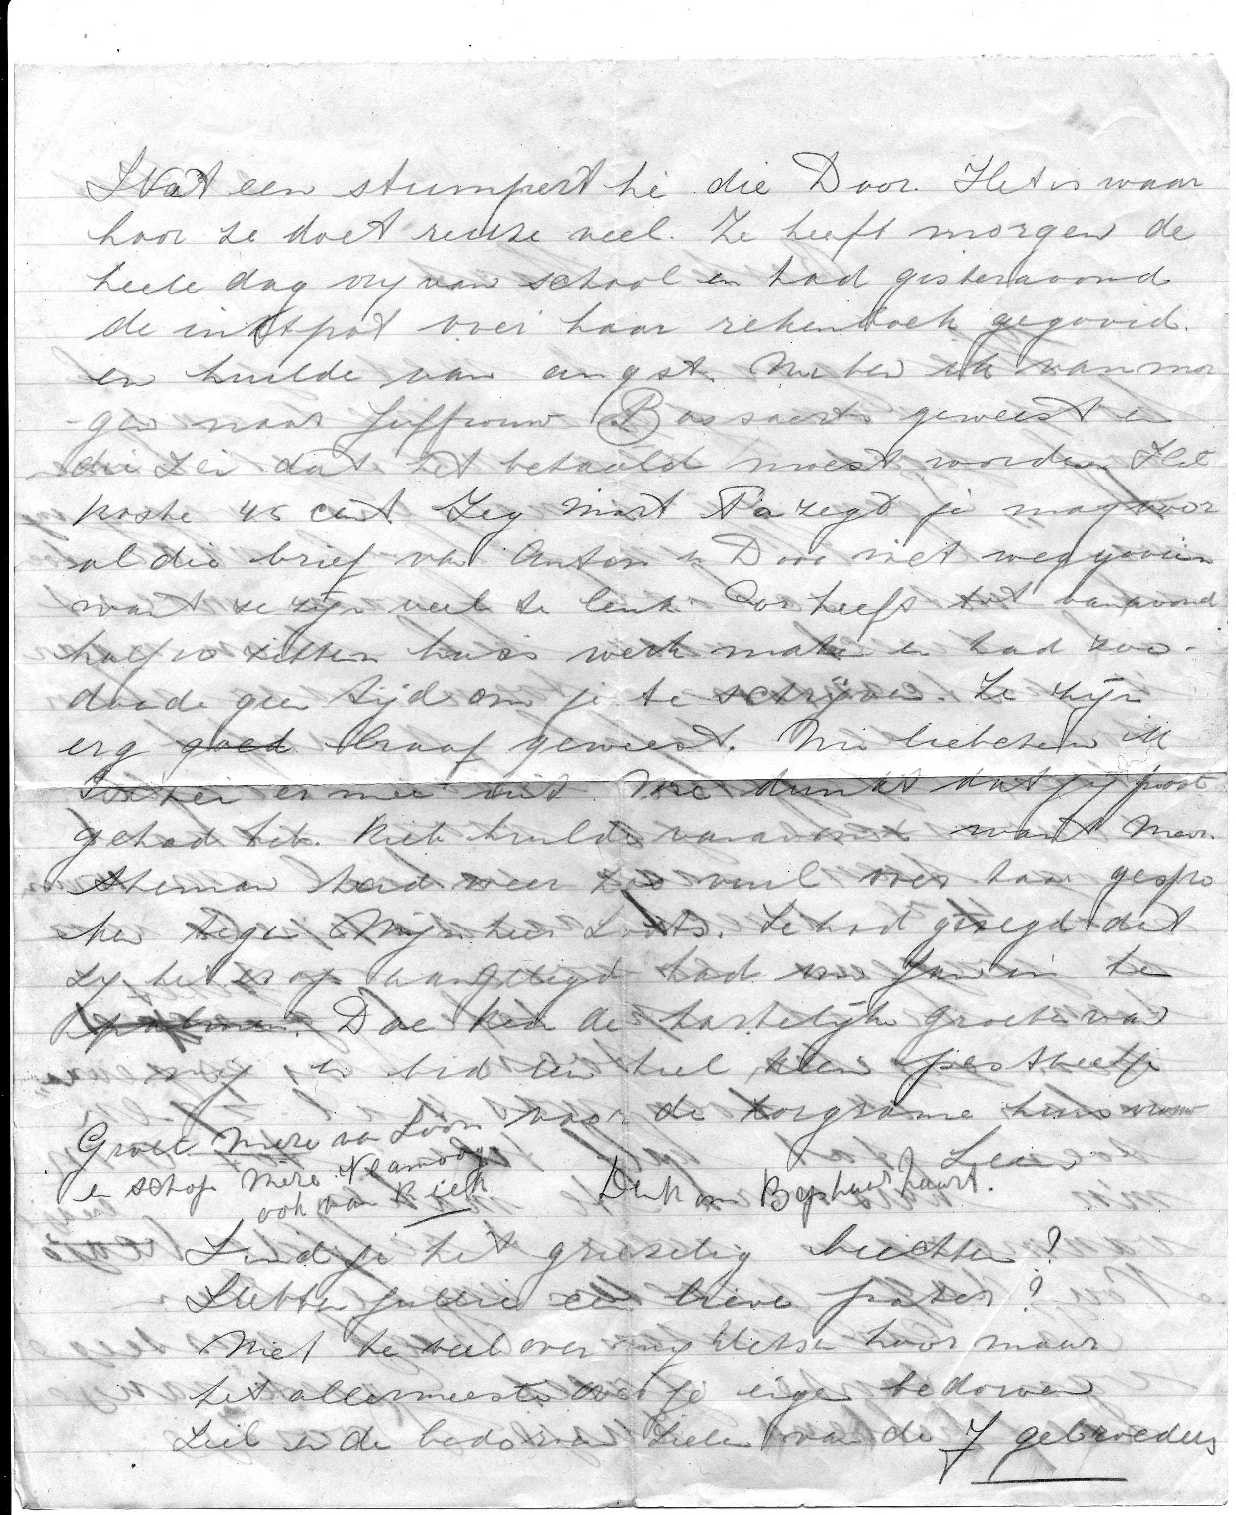 Wat een stumpert hé die Door. Het is waar
hoor ze doet reuze veel. Ze heeft morgen de
heele dag vrij van school en had gisteravond
de inktpot over haar rekenboek gegooid.
en huilde van angst. Nu ben ik vanmor
-gen naar Juffrouw Bossaerts geweest en
die zei dat het betaald moest worden Het
koste 45 cent Zeg Mart Pa zegt je mag voor
al die brief van Anton en Door niet weggooien
want ze zijn veel te leuk. Cor heeft tot vanavond
half 10 zitten huis werk maken en had zoo-
doende geen tijd om je te schrijven. Ze zijn
erg goed braaf geweest. Nu liebchen ik
er mee uit. Me dunkt dat jij post
gehad heb. Riek huilde vanavond want Mevr.
had weer zoo vuil over haar gespro
ken tegen Mijnheer Loots. Ze had gezegd dat
zij het er op aangelegd had om Jan in te
palmen. Doe Rein de hartelijke groeten van
mij en bid een heel klein
voor de zorgzame huisvrouw
Leen
Groet Mère van Loon
en schop Mère
ook van Riek
Denk om Bep haar kaart.
Vind je het griezelig biechten?
Hebben jullie een lieve pater?
Niet te veel over mij kletsen hoor maar
het allermeeste over je eigen bedorven
Ziel en de bedorven zielen van de 7 gebroeders